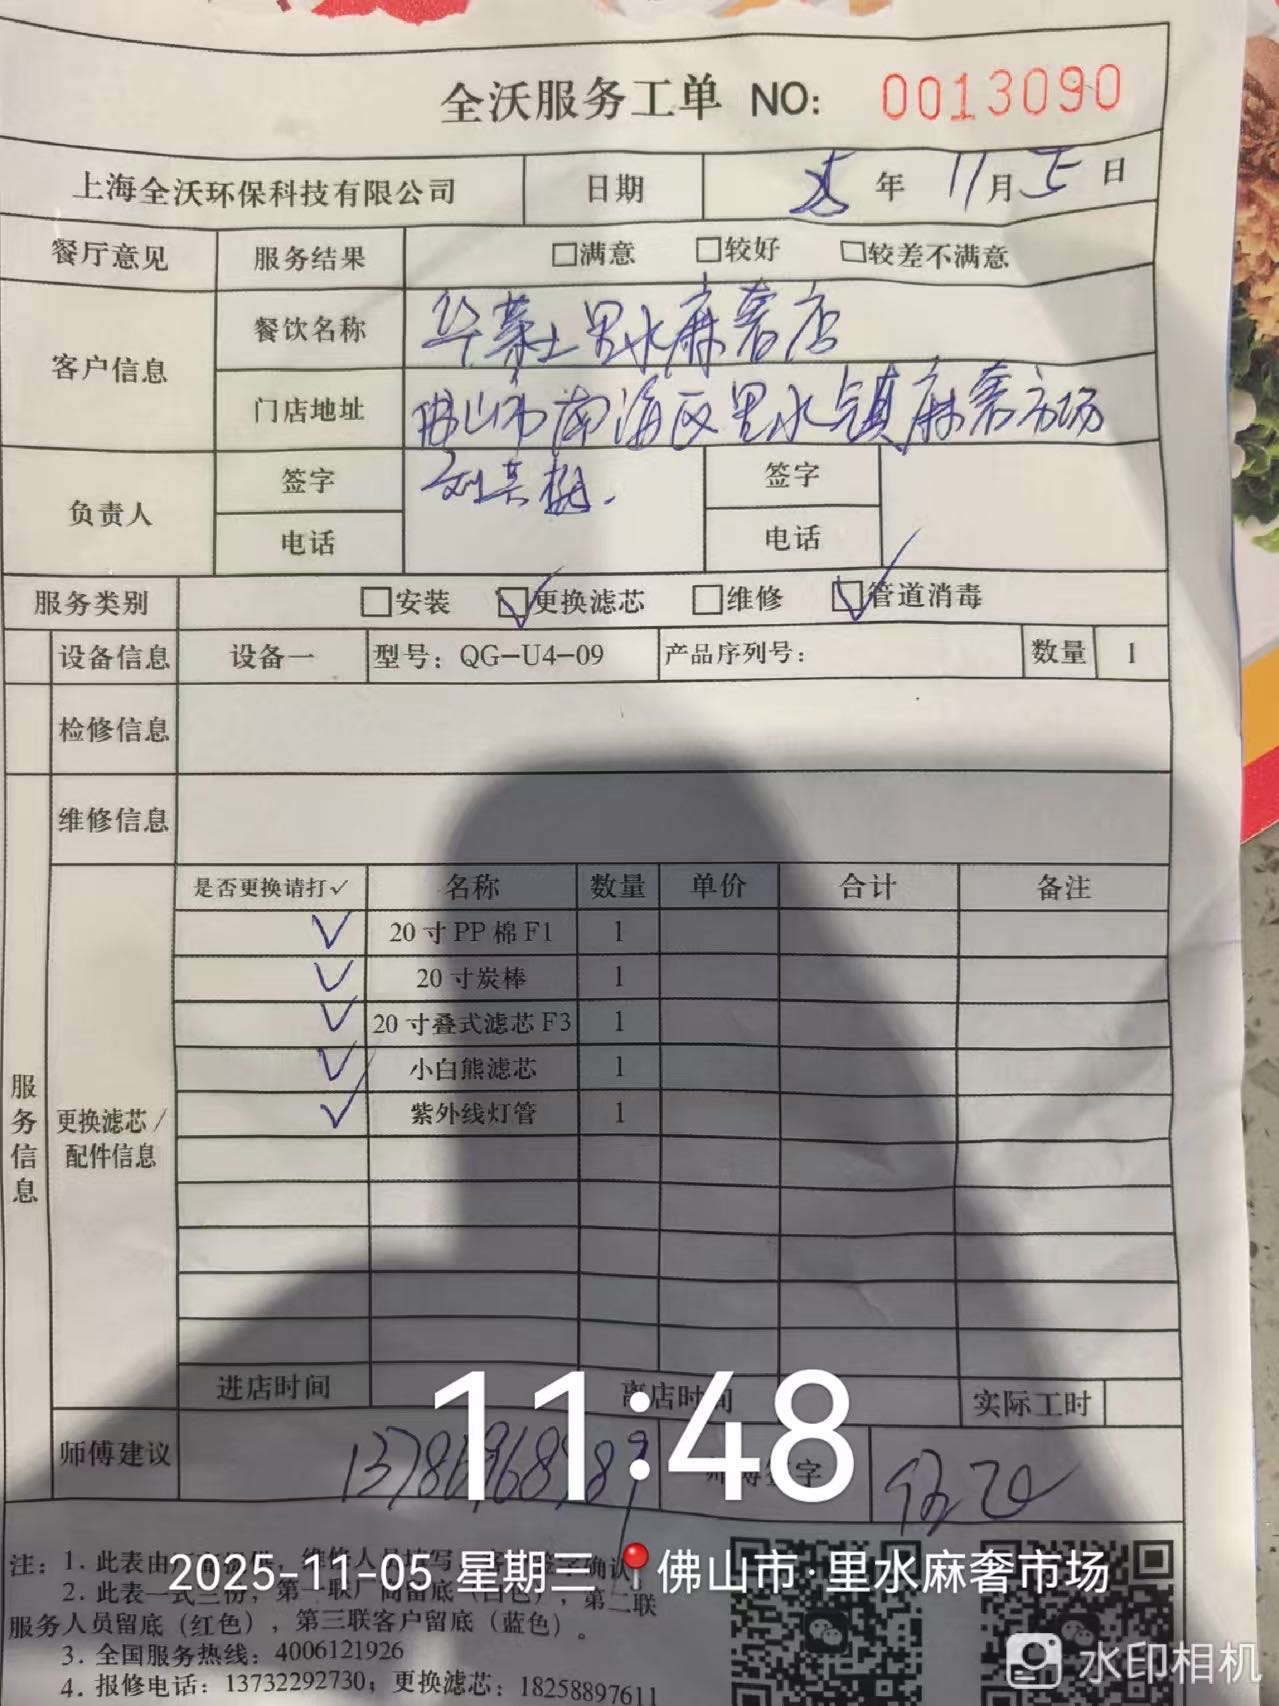 全沃服务工单 NO: 0013090
上海全沃环保科技有限公司 日期 年 11月5日
餐厅意见 服务结果 □满意 □较好 □较差不满意
客户信息 餐饮名称 华莱士里水麻奢店
门店地址 佛山市南海区里水镇麻奢市场
负责人 签字 签字
电话 电话
服务类别 □安装 ☑更换滤芯 □维修 ☑管道消毒
设备信息 设备一 型号：QG-U4-09 产品序列号： 数量 1
检修信息
维修信息
服务信息
更换滤芯/
配件信息
是否更换请打✓ 名称 数量 单价 合计 备注
✓ 20寸PP棉F1 1
✓ 20寸炭棒 1
✓ 20寸叠式滤芯F3 1
✓ 小白熊滤芯 1
✓ 紫外线灯管 1
进店时间 离店时间 实际工时
11:48
师傅建议 师傅签字
注：1. 此表由 维修人员填写 确认
2025-11-05 星期三 佛山市·里水麻奢市场
2. 此表一式三份，第一联厂商留底（白色），第二联
服务人员留底（红色），第三联客户留底（蓝色）。
3. 全国服务热线：4006121926
4. 报修电话：13732292730；更换滤芯：18258897611
水印相机